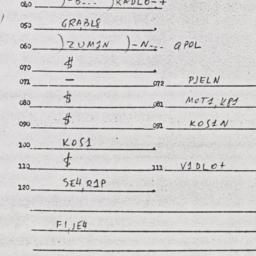 040 )-B... )RADLO-+
050 GRABLE
060 )ZUMIN )-N-.. QPOL
070 $
071 — 072 PJELN
080 $ 081 MOT1,KP1
090 $ 091 KOS1N
100 KOS1
110 $ 111 V1DLO+
120 SE4,Q1P
F1,JE4